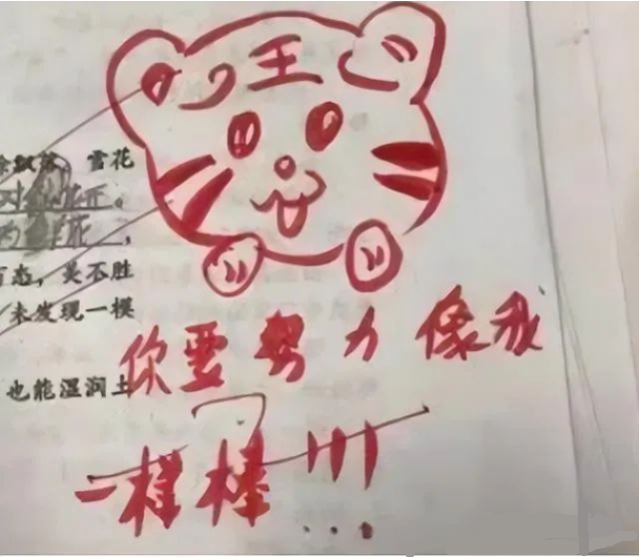 王
雪花
态，美不胜
未发现一模
也能湿润土
你要努力像我
一样棒!!!